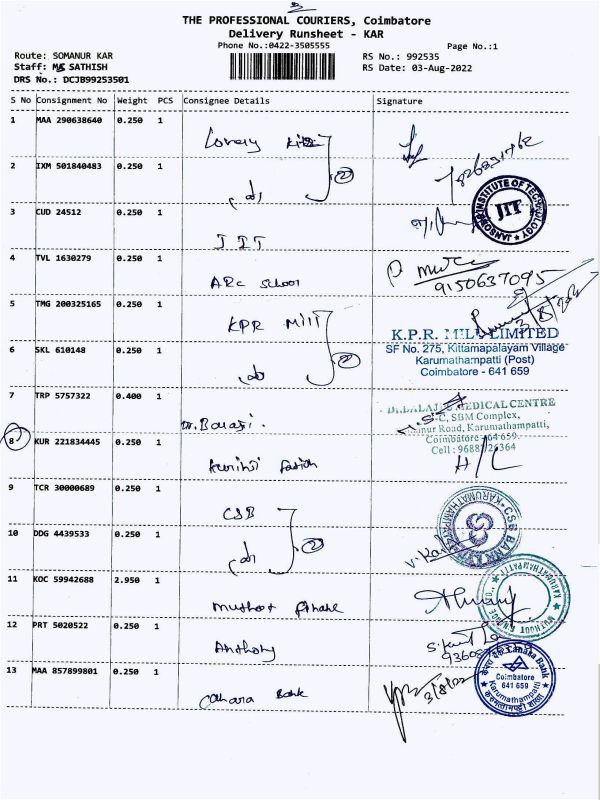 THE PROFESSIONAL COURIERS, Coimbatore
Delivery Runsheet - KAR
Phone No.:0422-3505555
Page No.:1
Route: SOMANUR KAR
RS No.: 992535
Staff: SATHISH
RS Date: 03-Aug-2022
DRS No.: DCJB99253501
S No Consignment No Weight PCS Consignee Details Signature
1 MAA 290638640 0.250 1
Lovely
2 IXM 501840483 0.250 1
②
3 CUD 24512 0.250 1
JIT
JANSONS INSTITUTE OF TECHNOLOGY
JIT
4 TVL 1630279 0.250 1
ARC school
9150637095
5 TMG 200325165 0.250 1
KPR Mill
K.P.R. MILL LIMITED
SF No. 275, Kittamapalayam Village
Karumathampatti (Post)
Coimbatore - 641 659
6 SKL 610148 0.250 1
②
7 TRP 5757322 0.400 1
Dr. Balaji.
Dr. BALAJI MEDICAL CENTRE
SBM Complex,
Road, Karumathampatti,
Coimbatore 64 659.
Cell : 9688 26364
8 KUR 221834445 0.250 1
H/C
9 TCR 30000689 0.250 1
CSB
CSB BANK
KARUMATHAMPATTI
10 DDG 4439533 0.250 1
②
11 KOC 59942688 2.950 1
Muthoot Finance
MUTHOOT FINANCE
KARUMATHAMPATTI
12 PRT 5020522 0.250 1
Anthony
13 MAA 857899801 0.250 1
Canara Bank
3/8/22
केनरा बैंक Canara Bank
Coimbatore
641 659
Karumathampatti